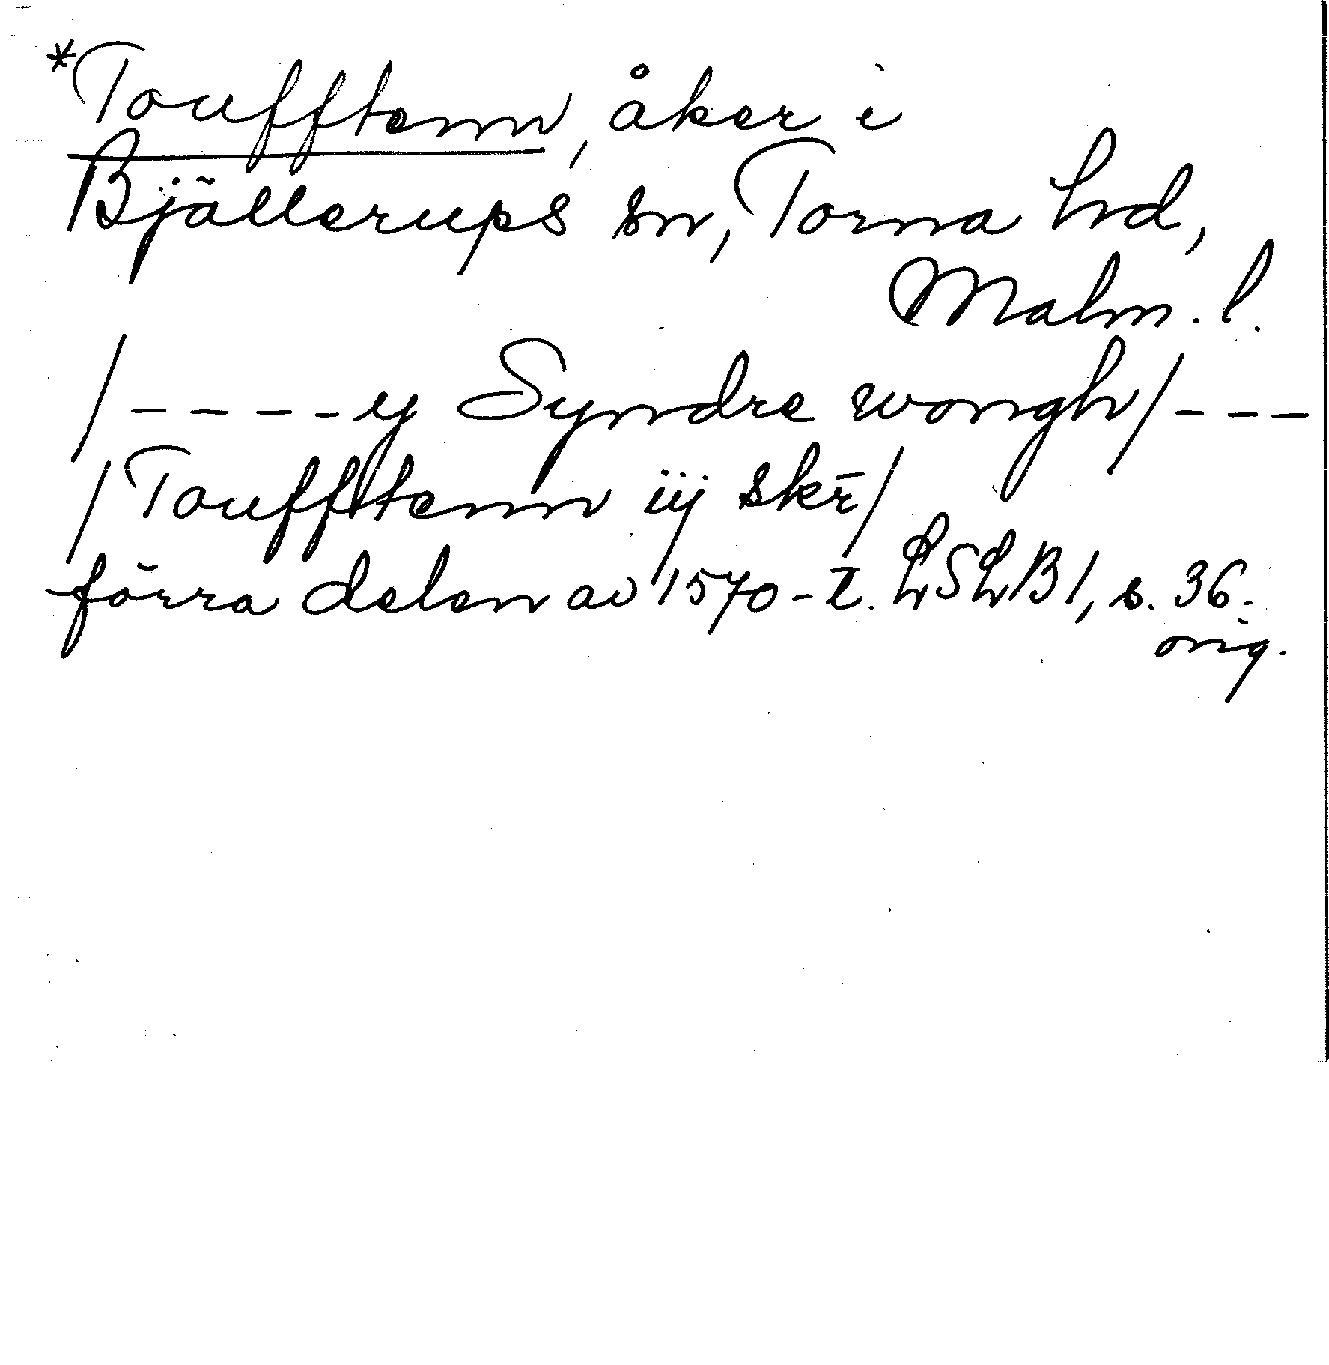 *Toufftenn, åker i
Bjällerups sn, Torna hd,
Malm. l.
/----y Syndre wongh/---
/Toufftenn iij skr̄/
förra delen av 1570-t. LSLB1, s. 36.
orig.